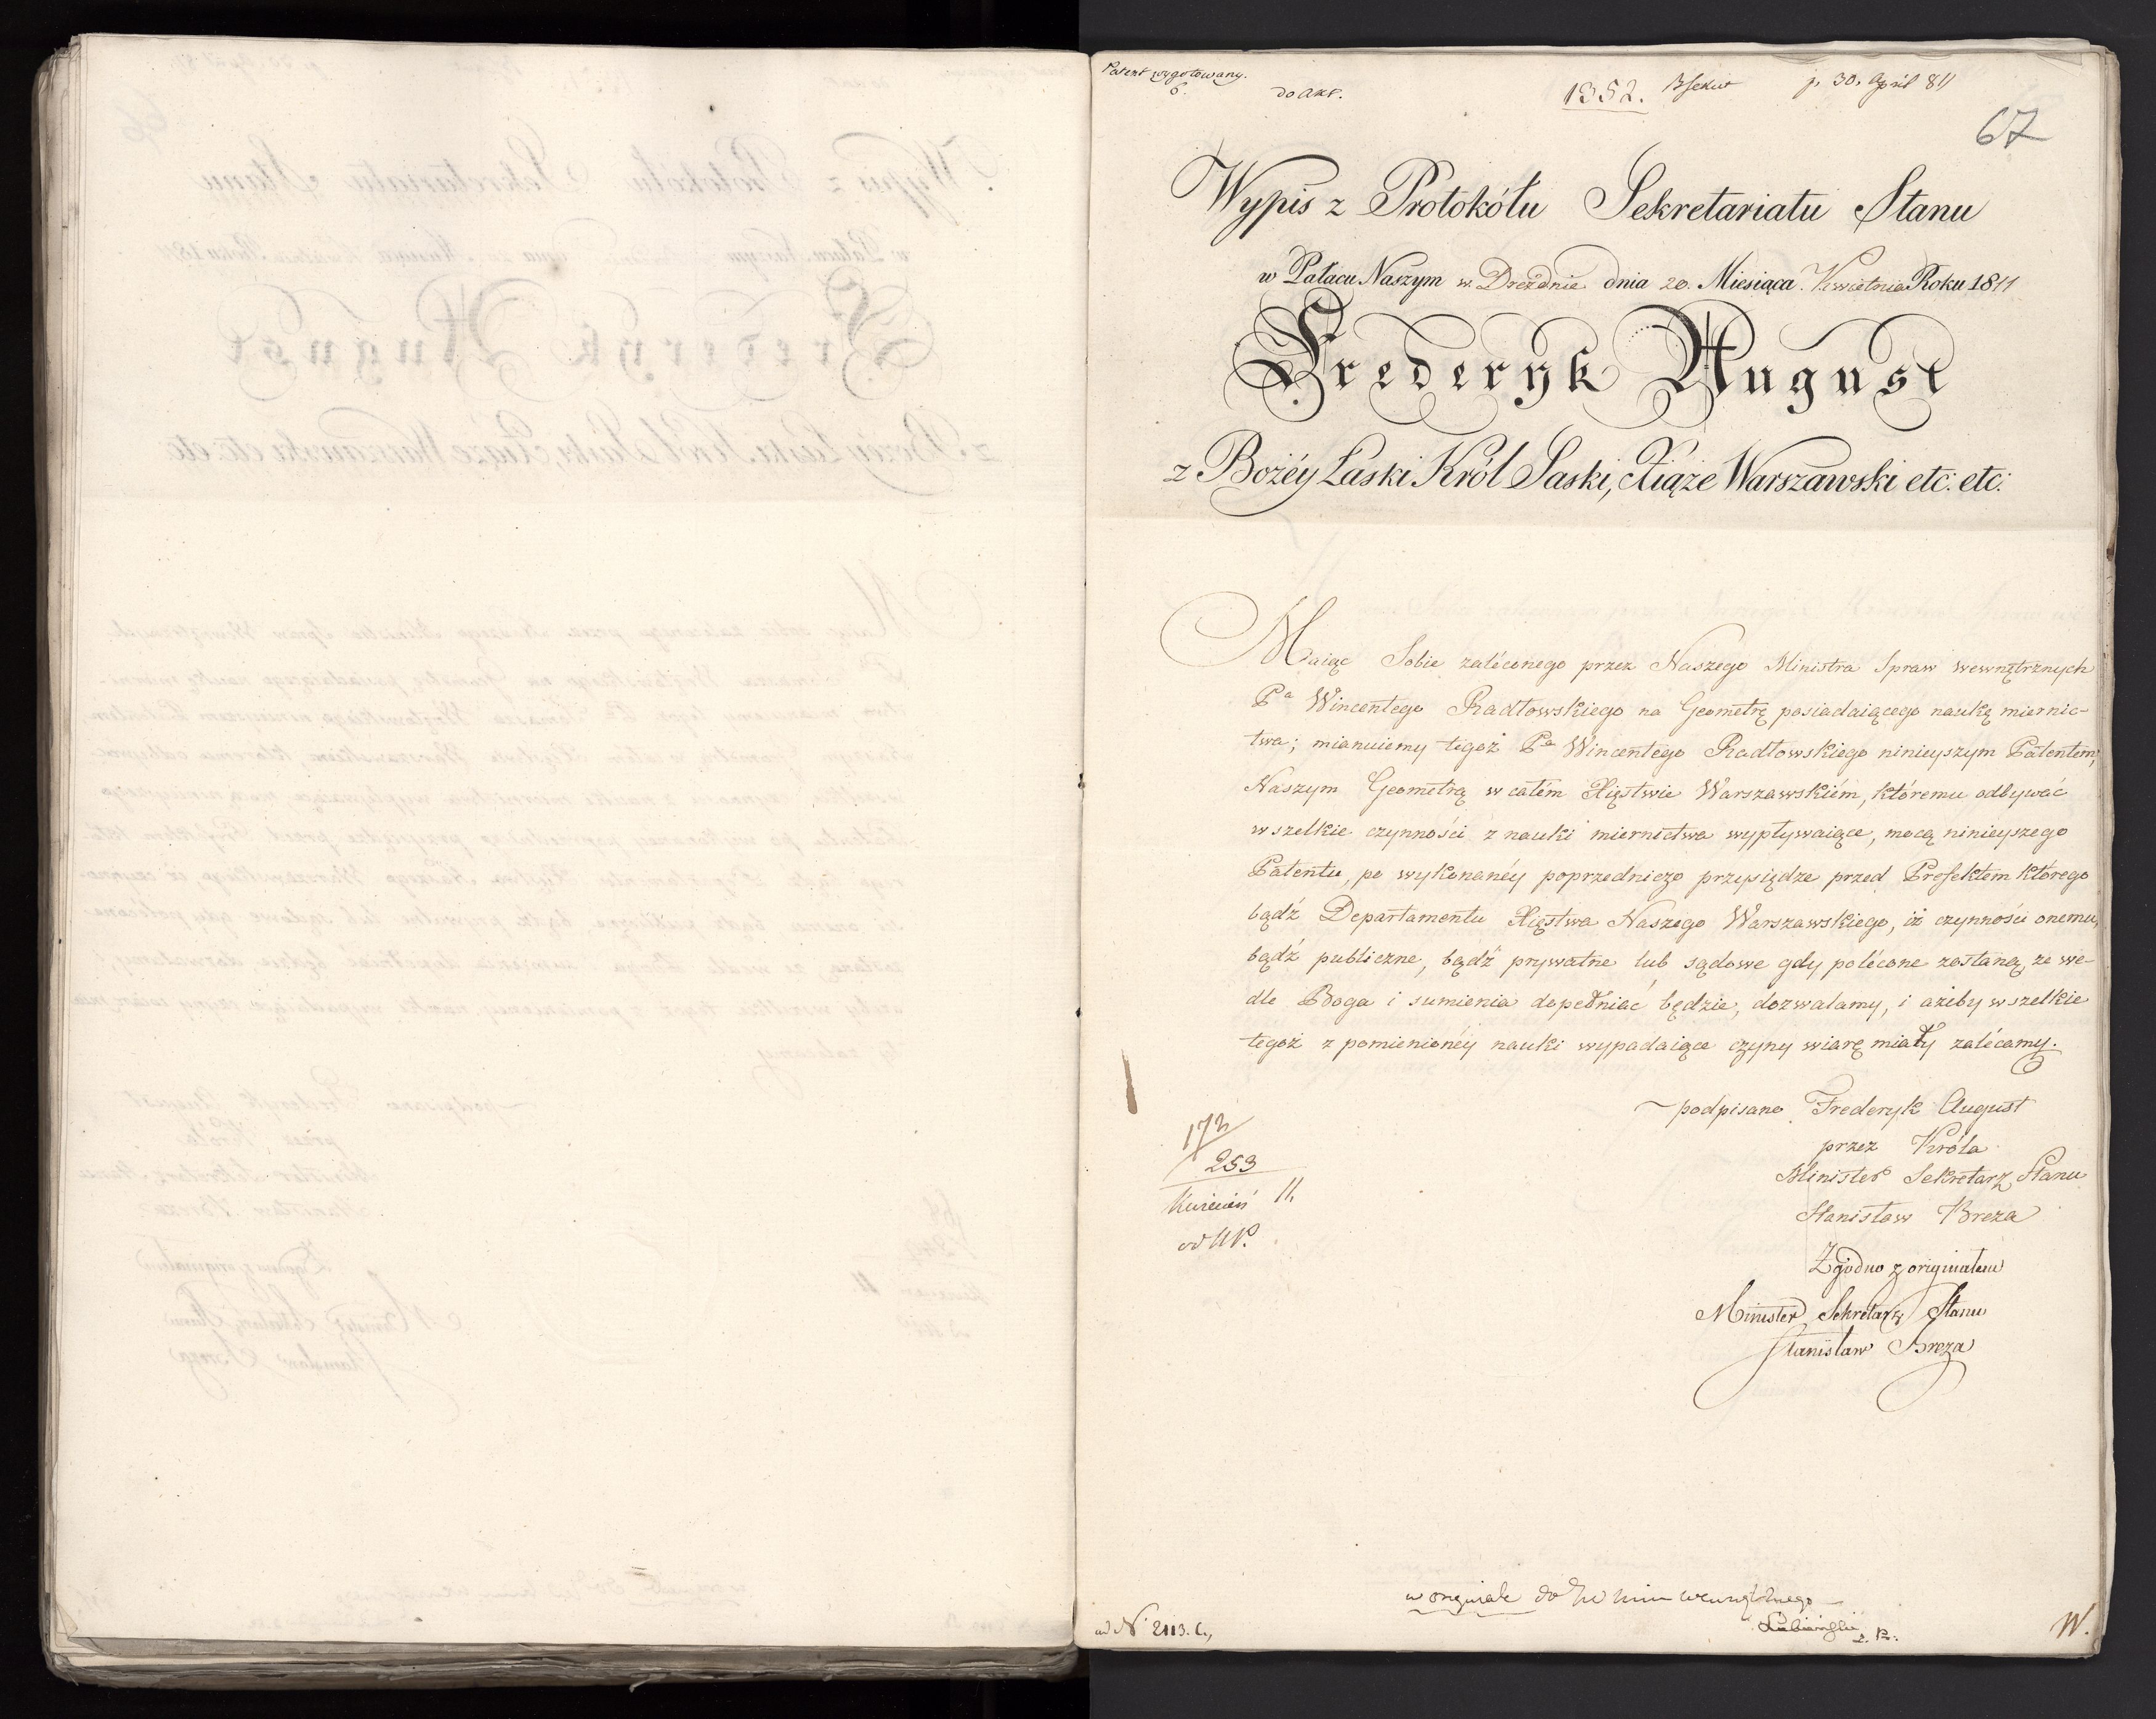 Patent wygotowany.
6.
do akt.
1352.
p. 30. April 811
67
Wypis z Protokółu Sekretariatu Stanu
w Pałacu Naszym w Dreźdnie dnia 20. Miesiąca Kwietnia Roku 1811
Fryderyk August
z Bożéy Łaski Król Saski, Xiąże Warszawski etc: etc:
Maiąc Sobie zaléconego przez Naszego Ministra Spraw wewnętrznych
Pa Wincentego Radłowskiego na Geometrę posiadaiącego naukę miernic-
twa; mianuiemy tegoż Pa Wincentego Radłowskiego ninieyszym Patentem,
Naszym Geometrą w całém Xięstwie Warszawskiém, któremu odbywać
wszelkie czynności z nauki miernictwa wypływaiące, mocą ninieyszego
Patentu, po wykonanéy poprzedniczo przysiędze przed Prefektem którego
bądź Departamentu Xięstwa Naszego Warszawskiego, iż czynności onemu,
bądź publiczne, bądź prywatne lub sądowe gdy polécone zostaną, ze we-
dle Boga i sumienia dopełniać będzie, dozwalamy, i ażeby wszelkie
tegoż z pomienionéy nauki wypadaiące czyny wiarę miały zalécamy.
podpisano Frederyk August
przez Króla
Minister Sekretarz Stanu
Stanisław Breza
172
253
Kwiecień 11.
Zgodno z originałem
Minister Sekretarz Stanu
Stanisław Breza
w originale do
ad N 2113. C.,
W.